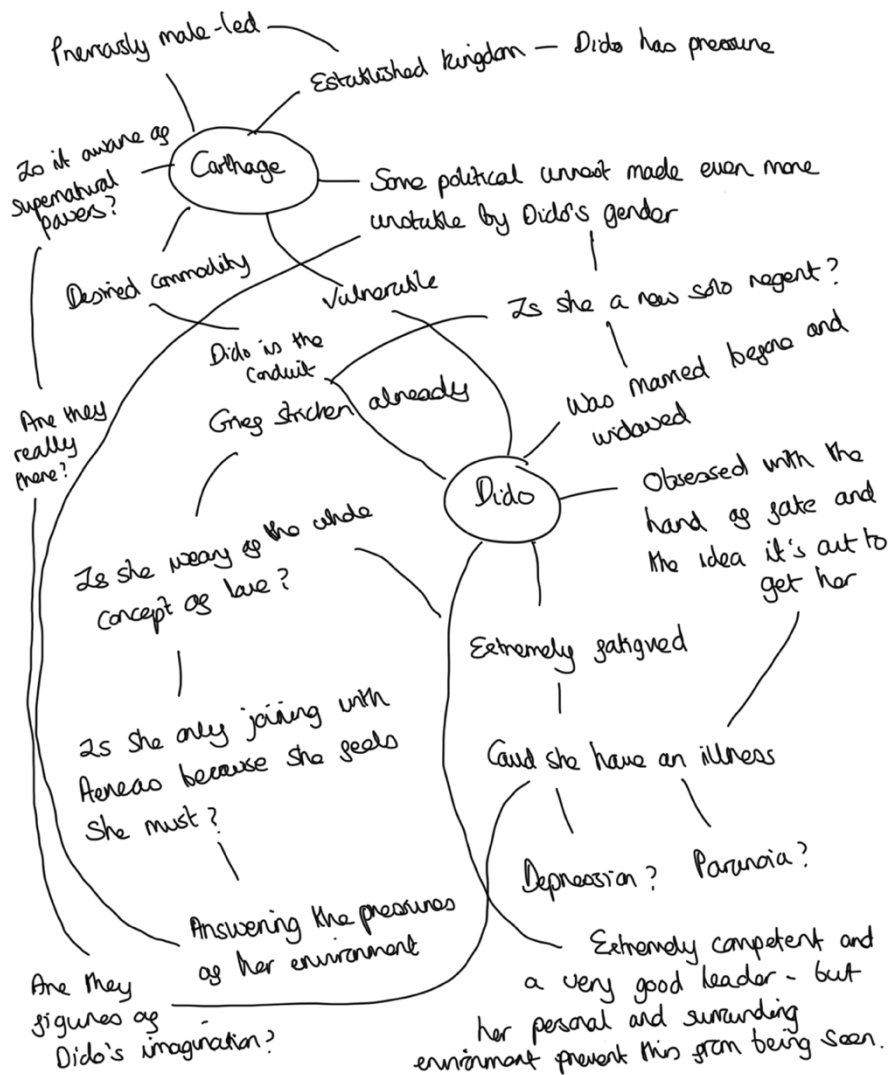 Previously male-led
Established kingdom — Dido has pressure
Is it aware of
supernatural
powers?
Carthage
Some political unrest made even more
unstable by Dido's gender
Desired commodity
Vulnerable
Is she a new solo regent?
Dido is the
conduit
Was married before and
widowed
Grief stricken already
Are they
really
there?
Dido
Obsessed with the
hand of fate and
the idea it's out to
get her
Is she weary of the whole
concept of love?
Extremely fatigued
Is she only joining with
Aeneas because she feels
she must?
Could she have an illness
Depression?
Paranoia?
Answering the pressures
of her environment
Are they
figures of
Dido's imagination?
Extremely competent and
a very good leader - but
her personal and surrounding
environment prevent this from being seen.